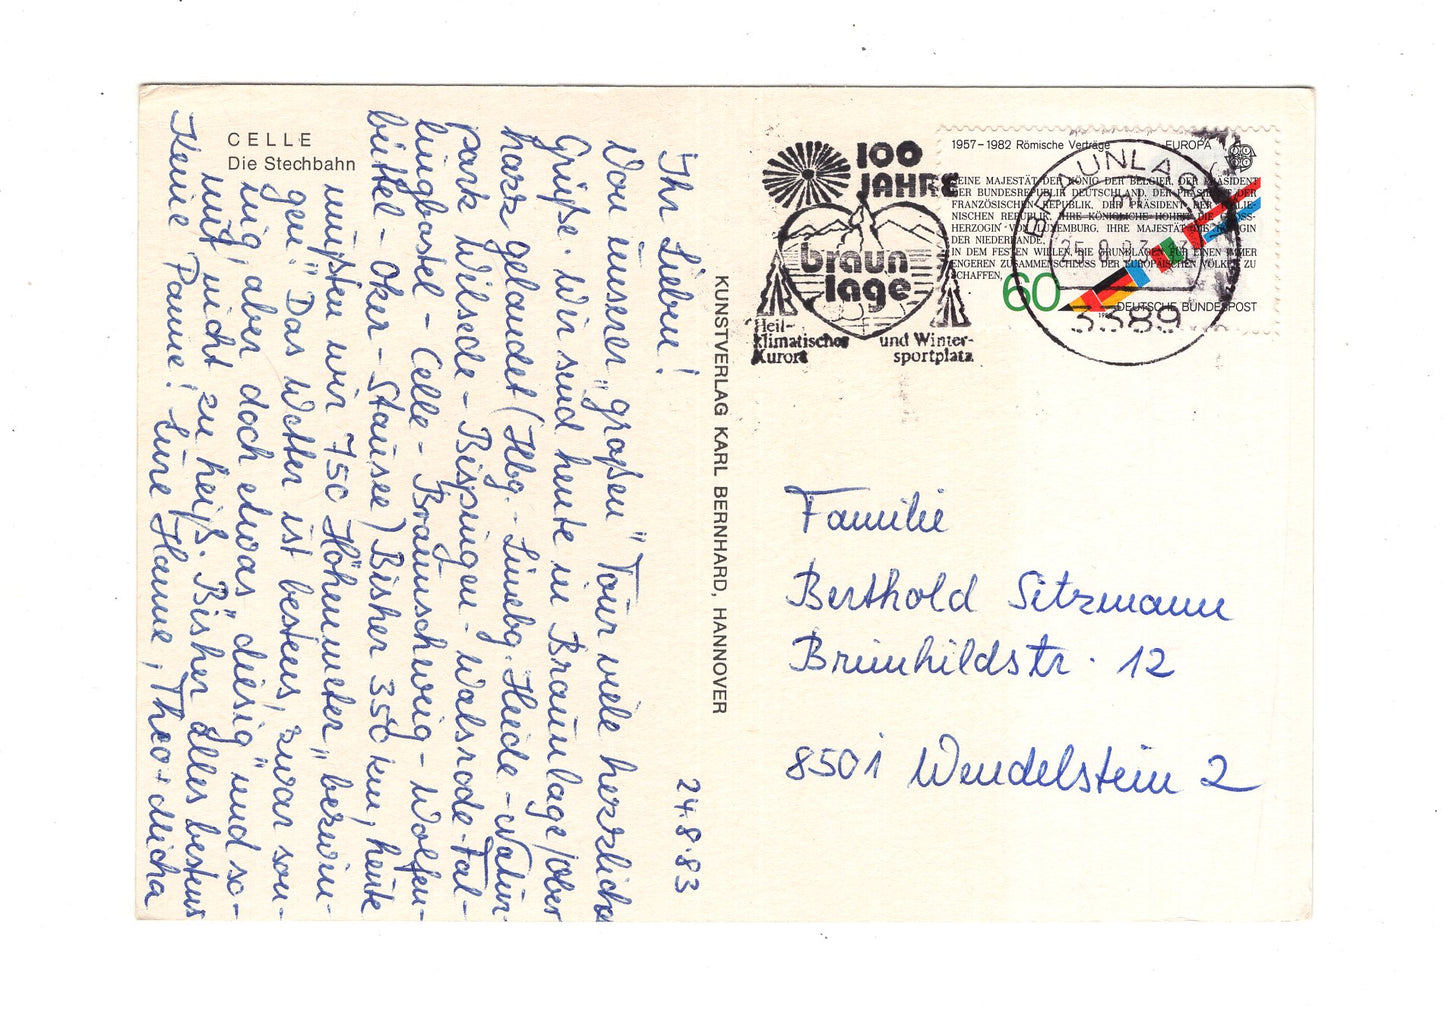 CELLE
Die Stechbahn
24.8.83
Ihr Lieben!
Von unserer "großen" Tour viele herzliche
Grüße. Wir sind heute in Braunlage/Ober
harz gelandet (Hbg. - Lünebg. Heide - Natur-
park Wilsede - Bispingen - Walsrode - Fal-
lingbostel - Celle - Braunschweig - Wolfen-
büttel - Oker - Stausee) Bisher 350 km, heute
mußten wir 750 Höhenmeter "bezwin-
gen". Das Wetter ist bestens, zwar son-
nig, aber doch etwas "diesig" und so-
mit nicht zu heiß. Bisher alles bestens
Keine Panne! Eure Hanne, Theo + Micha
KUNSTVERLAG KARL BERNHARD, HANNOVER
100
JAHRE
braun
lage
Heil-
klimatischer
Kurort
und Winter-
sportplatz
1957-1982 Römische Verträge
EUROPA
SEINE MAJESTÄT DER KÖNIG DER BELGIER, DER PRÄSIDENT
DER BUNDESREPUBLIK DEUTSCHLAND, DER PRÄSIDENT DER
FRANZÖSISCHEN REPUBLIK, DER PRÄSIDENT DER ITALIE-
NISCHEN REPUBLIK, IHRE KÖNIGLICHE HOHEIT DIE GROSS-
HERZOGIN VON LUXEMBURG, IHRE MAJESTÄT DIE KÖNIGIN
DER NIEDERLANDE,
IN DEM FESTEN WILLEN, DIE GRUNDLAGEN FÜR EINEN IMMER
ENGEREN ZUSAMMENSCHLUSS DER EUROPÄISCHEN VÖLKER ZU
SCHAFFEN,
60
DEUTSCHE BUNDESPOST
BRAUNLAGE
25.8.83
3389
Familie
Berthold Sitzmann
Brunhildstr. 12
8501 Wendelstein 2